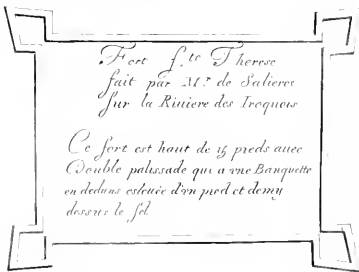 Fort S.te Therese
fait par Mr. de Salieres
sur la Riuiere des Iroquois
Ce fort est haut de 15 pieds auec
Double palissade qui a vne Banquette
en dedans esleuée d'vn pied et demy
dessus le sol